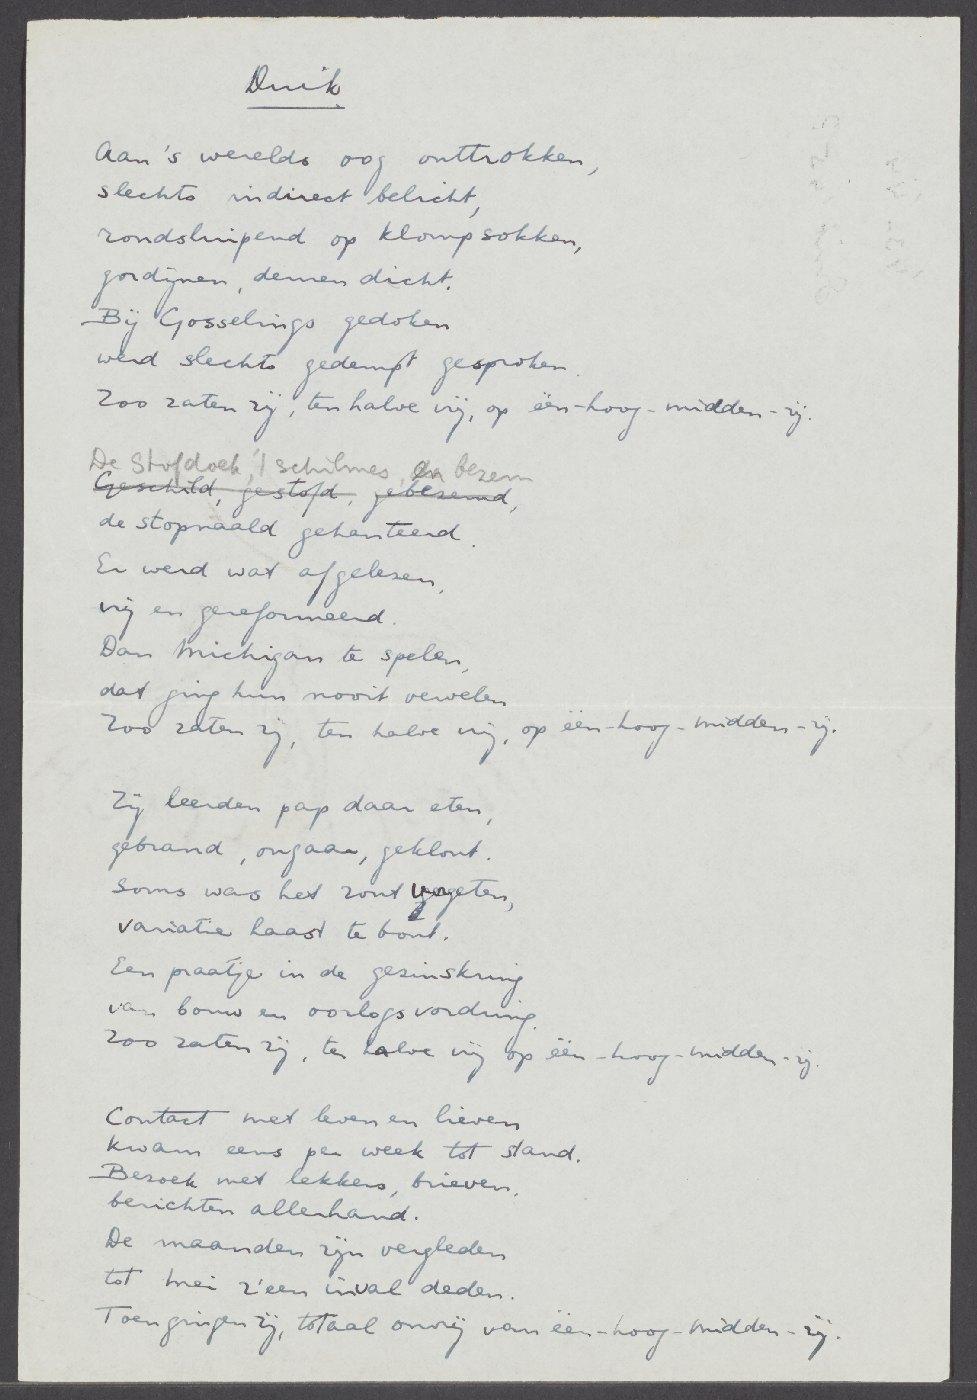 Duik.
Aan 's werelds oog onttrokken,
slechts indirect belicht,
rondsluipend op klompsokken,
gordijnen, deuren dicht.
Bij Gosselings gedoken
werd slechts gedempt gesproken.
Zoo zaten zij, ten halve vrij, op één-hoog-midden-zij.
De Stofdoek, 't schilmes, en bezem
Geschild, gestofd, gebezemd,
de stopnaald gehanteerd.
Er werd wat afgelezen,
vrij en gereformeerd.
Dan Michigan te spelen,
dat ging hun nooit vervelen
Zoo zaten zij, ten halve vrij, op één-hoog-midden-zij.
Zij leerden pap daar eten,
gebrand, ongaar, geklont.
Soms was het zout vergeten,
variatie haast te bont.
Een praatje in de gezinskring
van bouw en oorlogsvordring.
Zoo zaten zij, ten halve vrij op één-hoog-midden-zij.
Contact met leven en lieven
kwam eens per week tot stand.
Bezoek met lekkers, brieven,
berichten allerhand.
De maanden zijn vergleden
tot Mei z'een inval deden.
Toen gingen zij, totaal onvrij van één-hoog-midden-zij.